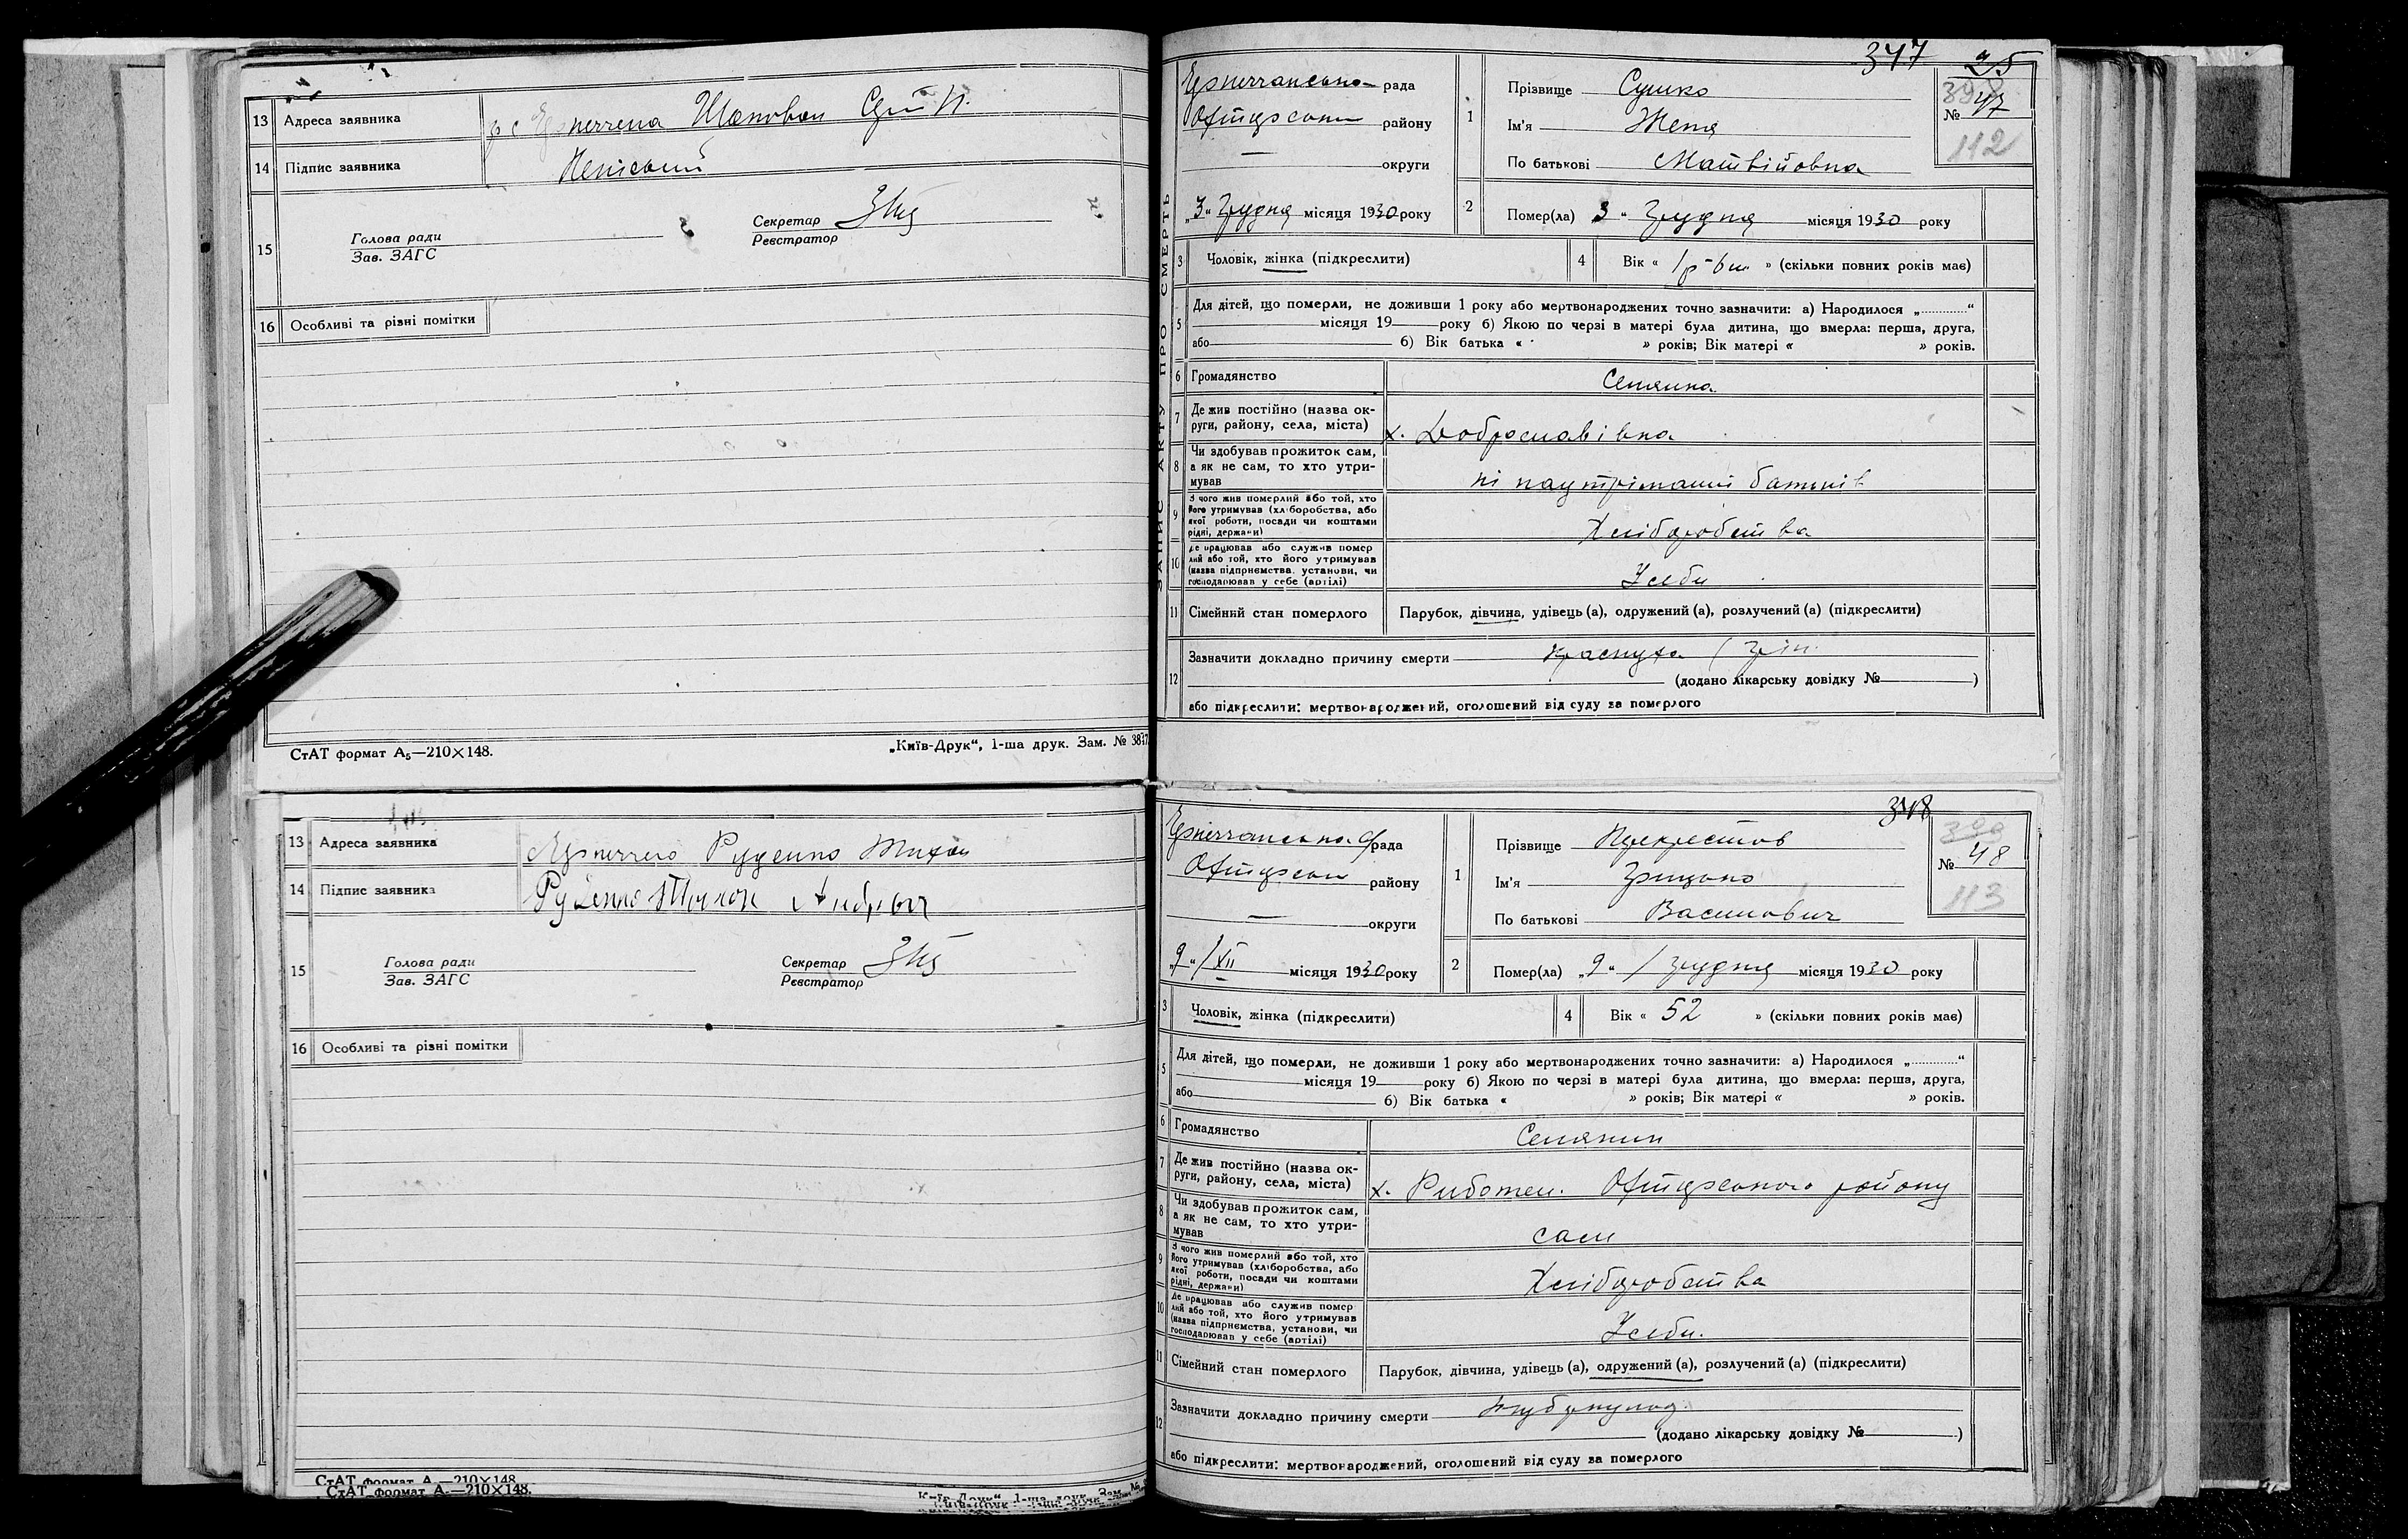 13 Адреса заявника Шаповал
14 Підпис заявника
15 Голова ради
Зав. ЗАГС
Секретар
Реєстратор
16 Особливі та різні помітки
СтАТ формат А5—210×148.
„Київ-Друк“, 1-ша друк. Зам. №
13 Адреса заявника Руденко Тихон
14 Підпис заявника Руденко Тихон
15 Голова ради
Зав. ЗАГС
Секретар
Реєстратор
16 Особливі та різні помітки
СтАТ формат А5—210×148.
347 25
рада
району
округи
„3“ Грудня місяця 1930 року
1 Прізвище Сушко
Ім'я Женя
По батькові Матвійовна
№ 47
112
2 Помер(ла) 3 “ Грудня місяця 1930 року
ЗАПИС АКТУ ПРО СМЕРТЬ
3 Чоловік, жінка (підкреслити)
4 Вік « » (скільки повних років має)
5 Для дітей, що померли, не доживши 1 року або мертвонароджених точно зазначити: а) Народилося „ “
місяця 19 року б) Якою по черзі в матері була дитина, що вмерла: перша, друга,
або б) Вік батька « » років; Вік матері « » років.
6 Громадянство Селянка
7 Де жив постійно (назва округи, району, села, міста) х. Доброславівка
8 Чи здобував прожиток сам, а як не сам, то хто утримував ні на утріманні батьків
9 З чого жив померлий або той, хто його утримував (хліборобства, або якої роботи, посади чи коштами рідні, держави) Хліборобства
10 Де працював або служив померлий або той, хто його утримував (назва підприємства, установи, чи господарював у себе (артілі) У себи
11 Сімейний стан померлого Парубок, дівчина, удівець (а), одружений (а), розлучений (а) (підкреслити)
12 Зазначити докладно причину смерти краснуха
(додано лікарську довідку № )
або підкреслити: мертвонароджений, оголошений від суду за померлого
348
рада
району
округи
„9“ /XII місяця 1930 року
1 Прізвище Перекрестов
Ім'я Грицько
По батькові Василович
№ 48
113
2 Помер(ла) „9“ / Грудня місяця 1930 року
3 Чоловік, жінка (підкреслити)
4 Вік « 52 » (скільки повних років має)
5 Для дітей, що померли, не доживши 1 року або мертвонароджених точно зазначити: а) Народилося „ “
місяця 19 року б) Якою по черзі в матері була дитина, що вмерла: перша, друга,
або б) Вік батька « » років; Вік матері « » років.
6 Громадянство Селянин
7 Де жив постійно (назва округи, району, села, міста) х. району
8 Чи здобував прожиток сам, а як не сам, то хто утримував сам
9 З чого жив померлий або той, хто його утримував (хліборобства, або якої роботи, посади чи коштами рідні, держави) Хліборобства
10 Де працював або служив померлий або той, хто його утримував (назва підприємства, установи, чи господарював у себе (артілі) У себи.
11 Сімейний стан померлого Парубок, дівчина, удівець (а), одружений (а), розлучений (а) (підкреслити)
12 Зазначити докладно причину смерти
(додано лікарську довідку № )
або підкреслити: мертвонароджений, оголошений від суду за померлого